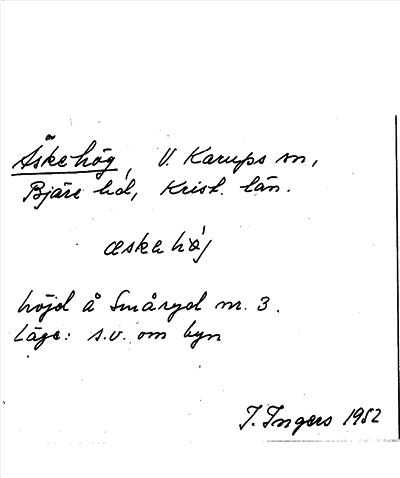 Äskehög, V. Karups sn,
Bjäre hd, Krist. län.
æskahǻj
höjd å Småryd nr. 3.
Läge: s.v. om byn
I. Ingers 1952